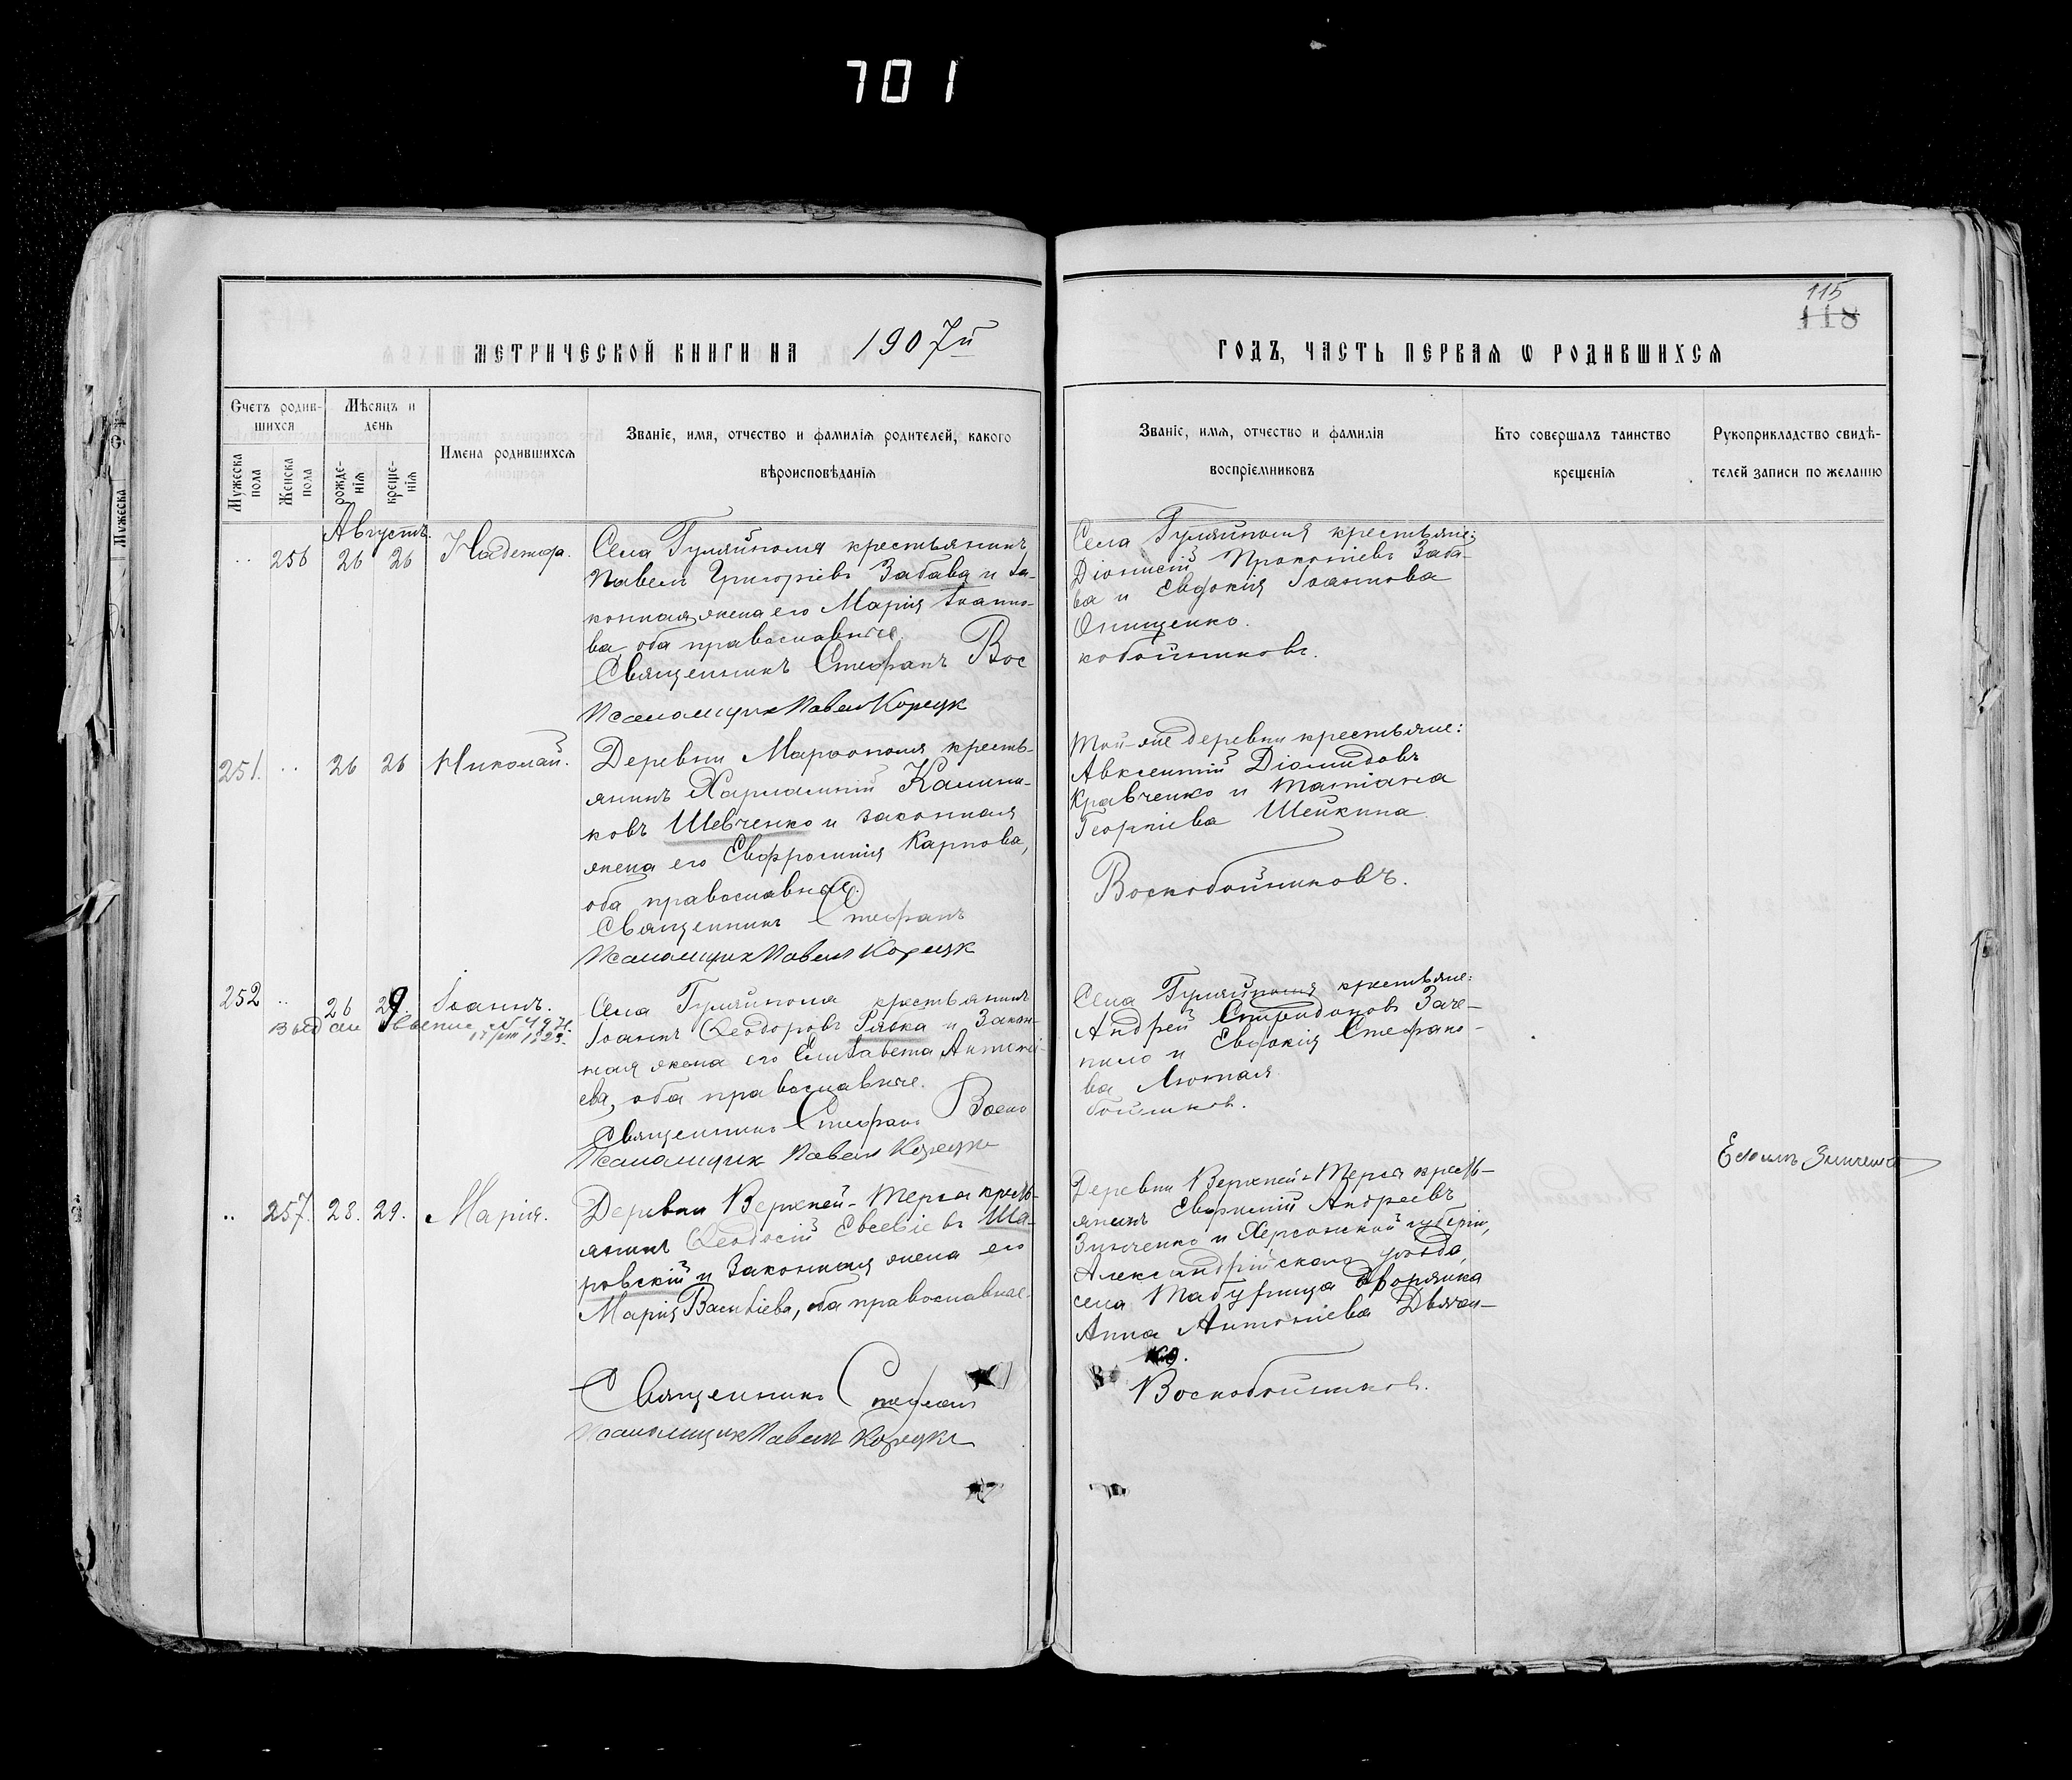 701
115
118
МЕТРИЧЕСКОЙ КНИГИ НА 1907й
ГОДЪ, ЧАСТЬ ПЕРВАЯ Ѡ РОДИВШИХСЯ
Счетъ родив-
шихся
Мужеска пола
Женска пола
Мѣсяцъ и
день
рожде-
нія
креще-
нія
Имена родившихся
Званіе, имя, отчество и фамилія родителей, какого
вѣроисповѣданія
Званіе, имя, отчество и фамилія
воспріемниковъ
Кто совершалъ таинство
крещенія
Рукоприкладство свидѣ-
телей записи по желанію
Мужеска
Августъ.
256 26 26 Надежда.
Села Гуляйполя крестьянинъ
Павелъ Григоріевъ Забава и за-
конная жена его Марія Іоанно-
ва, оба православные.
Священникъ Стефанъ Вос
Псаломщик Павел Корецк
Села Гуляйполя крестьяне:
Діонисій Прокопіевъ Заба-
ва и Евдокія Іоаннова
Онищенко.
кобойниковъ.
251. 26 26 Николай.
Деревни Марфополя кресть-
янинъ Харлампій Калини-
ковъ Шевченко и законная
жена его Евфросинія Карпова,
оба православные.
Священникъ Стефанъ
Псаломщик Павел Корецк
Той-же деревни крестьяне:
Авксентій Діомидовъ
Кравченко и Татіана
Георгіева Шейкина
Воскобойниковъ.
252 26 29. Іоаннъ.
Села Гуляйполя крестьянинъ
Іоаннъ Ѳеодоровъ Рябка и закон-
ная жена его Елизавета Антоні-
ева, оба православные.
Священникъ Стефанъ Воско
Псаломщик Павел Корецк
Села Гуляйполя крестьяне:
Андрей Спиридоновъ Заче-
пило и Евдокія Стефано-
ва Лютая
бойников.
257. 28. 29. Марія.
Деревни Верхней-Терса кресть-
янинъ Ѳеодосій Евсевіевъ Ша-
ровскій и законная жена его
Марія Василіева, оба православные.
Священникъ Стефанъ
Псаломщик Павелъ Корецк
Деревни Верхней-Терса кресть-
янинъ Евфимій Андреевъ
Зинченко и Херсонской губерніи,
Александрійскаго уѣзда,
села Табурища дворянка
Анна Антоніева
Воскобойников.
Ефимъ Зинченко